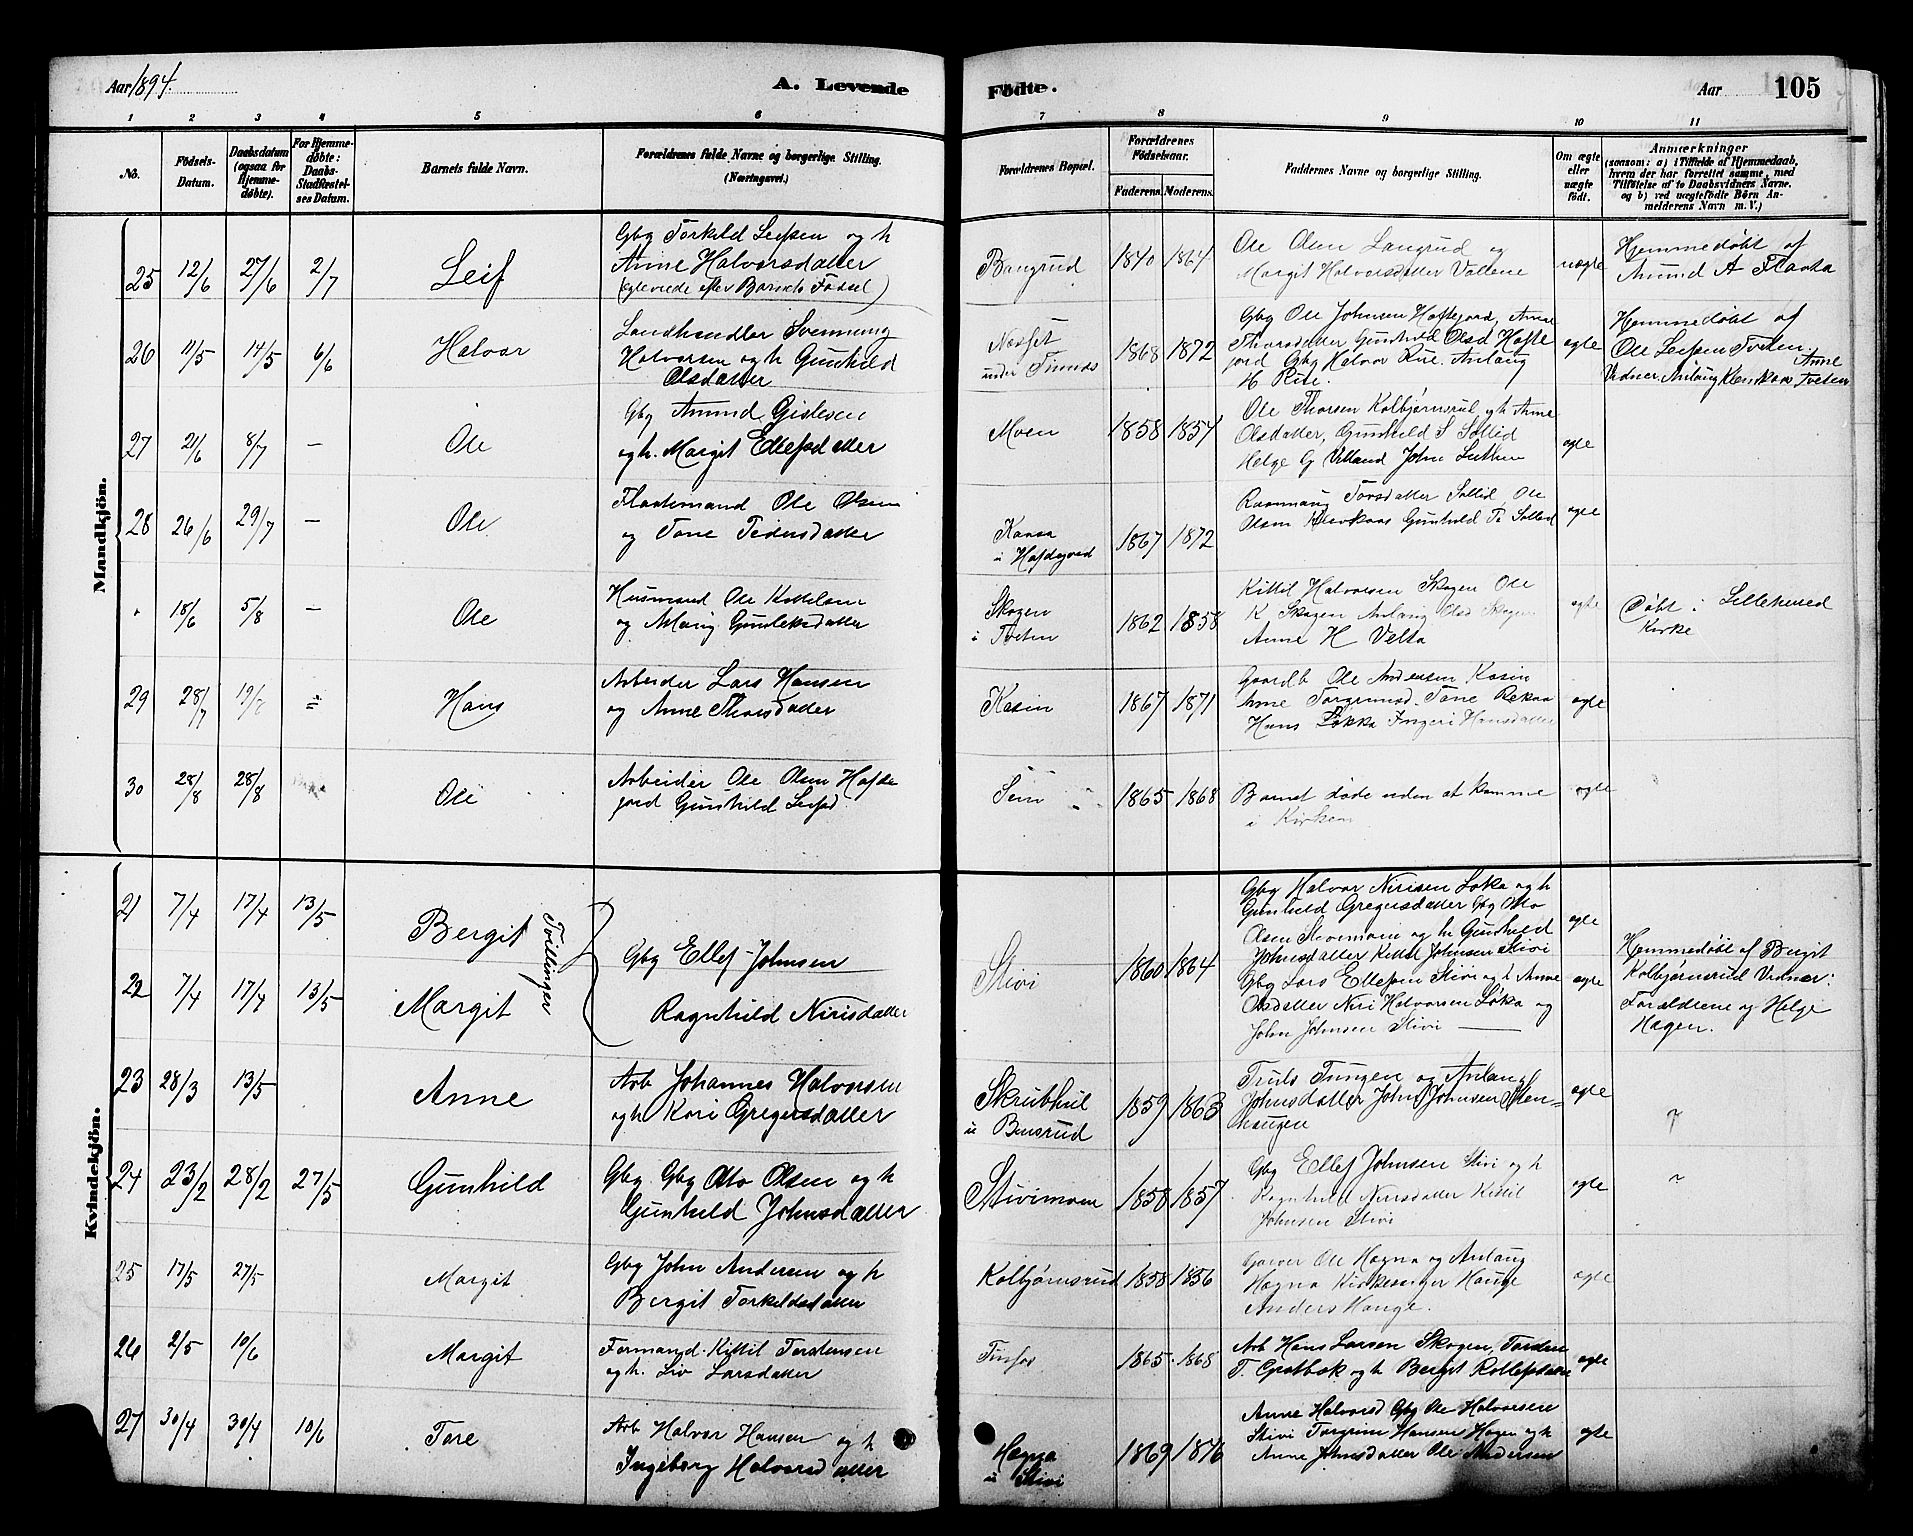 Aar 1894.
A. Levende
Fødte.
Aar
105
1 2 3 4 5 6 7 8 9 10 11
No.
Fødsels-
Datum.
Daabsdatum
(ogsaa for
Hjemme-
døbte).
For Hjemme-
døbte:
Daabs-
Stadfæstel-
ses Datum.
Barnets fulde Navn.
Forældrenes fulde Navne og borgerlige Stilling.
(Næringsvei.)
Forældrenes Bopæl.
Forældrenes
Fødselsaar.
Faderens. Moderens.
Faddernes Navne og borgerlige Stilling.
Om ægte
eller
uægte
født.
Anmærkninger
(saasom: a) i Tilfælde af Hjemmedaab,
hvem der har forrettet samme, med
Tilføielse af to Daabsvidners Navne.
og b) ved uægtefødte Børn An-
melderens Navn m. V.)
Mandkjön.
25 12/6 27/6 2/7 Leif
Gbg Torkild Leifsen og h
Anne Halvorsdatter
(egteviede efter Barnets Fødsel)
Bangrud 1840 1864
Ole Olsen Langrud og
Margit Halvorsdatter Vallene
uægte
Hjemmedøbt af
Amund A Flaata
26 11/5 14/5 6/6 Halvor
Landhandler Svennung
Halvorsen og h Gunhild
Olsdatter
Nesset
under
1868 1872
Gbg Ole Johnsen Haftegord, Anne
Thorsdatter Gunhild Olsd Hafte
jord Gbg Halvor Rue. Anlaug
H Rise.
egte
Hjemmedøbt af
Ole Leifsen Tveten.
Vidner. Anlaug Anne Tveten
27 21/6 8/7 — Ole
Gbg Amund Gislesen
og h. Margit Ellefsdatter
Moen 1858 1857
Ole Thorsen Kolbjørnsrud og h Anne
Olsdatter, Gunhild S Sollid
Helge G Villand John
egte
28 26/6 29/7 — Ole
Fløatemand Ole Olsen
og Tone Pedersdatter
Kaasa
u Hafdegaard
1867 1872
Torsdatter Sollid Ole
Olsen Gunhild T. Sollid
egte
" 18/6 5/8 — Ole
Husmand Ole Kittilsen
og Aslaug Gunleksdatter
Skogen
i Tveten
1862 1858
Kittil Halvorsen Skogen Ole
K Skogen Anlaug Olsd Skogen
Anne H Velta
egte
Døbt i Lilleherred
Kirke
29 28/7 19/8 = Hans
Arbeider Lars Hansen
og Anne Thorsdatter
Kasin 1867 1871
Gaardb Ole Andersen Kasin
Anne Torgrimsd. Tone Rekaa
Hans Løkka Ingeri Hansdatter
egte
30 28/8 28/8 Ole
Arbeider Ole Olsen Hafte
jord Gunhild Leifsd.
Sem 1865 1868
Barnet døde uden at komme
i Kirken
egte
Kvindekjön.
21 7/4 17/4 13/5 Bergit
22 7/4 17/4 13/5 Margit
Tvillinger
Gbg Ellef Johnsen
Ragnhild Nirisdatter
Stivi 1860 1864
Gbg Halvor Nirisen Løka og h
Gunhild Gregersdatter Gbg Otto
Olsen Stivimoen og h Gunhild
Johnsdatter Kittil Johnsen Stivi
egte
Gbg Lars Ellefsen Stivi og h Anne
Olsdatter Niri Halvorsen Løka og
John Johnsen Stivi —
egte
Hjemmedøbt af Bergit
Kolbjørnsrud Vidner:
Forældrene og Helge
Hagen.
23 28/3 13/5 Anne
Arb Johannes Halvorsen
og h Kari Gregersdatter
Skrubhul
u Bensrud
1859 1863
Truls Tungen og Anlaug
Johnsdatter John Johnsen Sten=
haugen
egte
24 23/2 28/2 27/5 Gunhild
Gbg. Gbg Otto Olsen og h
Gunhild Johnsdatter
Stivimoen 1858 1857
Gbg Ellef Johnsen Stivi og h
Ragnhild Nirisdatter Kittil
Johnsen Stivi
egte
25 17/5 27/5 Margit
Gbg John Andersen og h
Bergit Torkildsdatter
Kolbjørnsrud 1858 1856
Ole Hagna og Anlaug
Hagna Kirkesanger Hauge
Anders Hauge.
egte
26 2/5 10/6 Margit
Formand. Kittil Torstensen
og h. Liv Larsdatter
Tinfos 1865. 1868
Arb Hans Larsen Skogen, Torsten
T. Grotbæk og h Bergit Rollefsdatter
egte
27 30/4 30/4 10/6 Tore
Arb Halvor Hansen og h
Ingeborg Halvorsdatter
Hagna
u Stivi
1869 1876
Anne Halvorsd Gbg Ole Halvorsen
Stivi Torgrim Hansen Hagen og h
Anne Johnsdatter Ole Andersen
egte